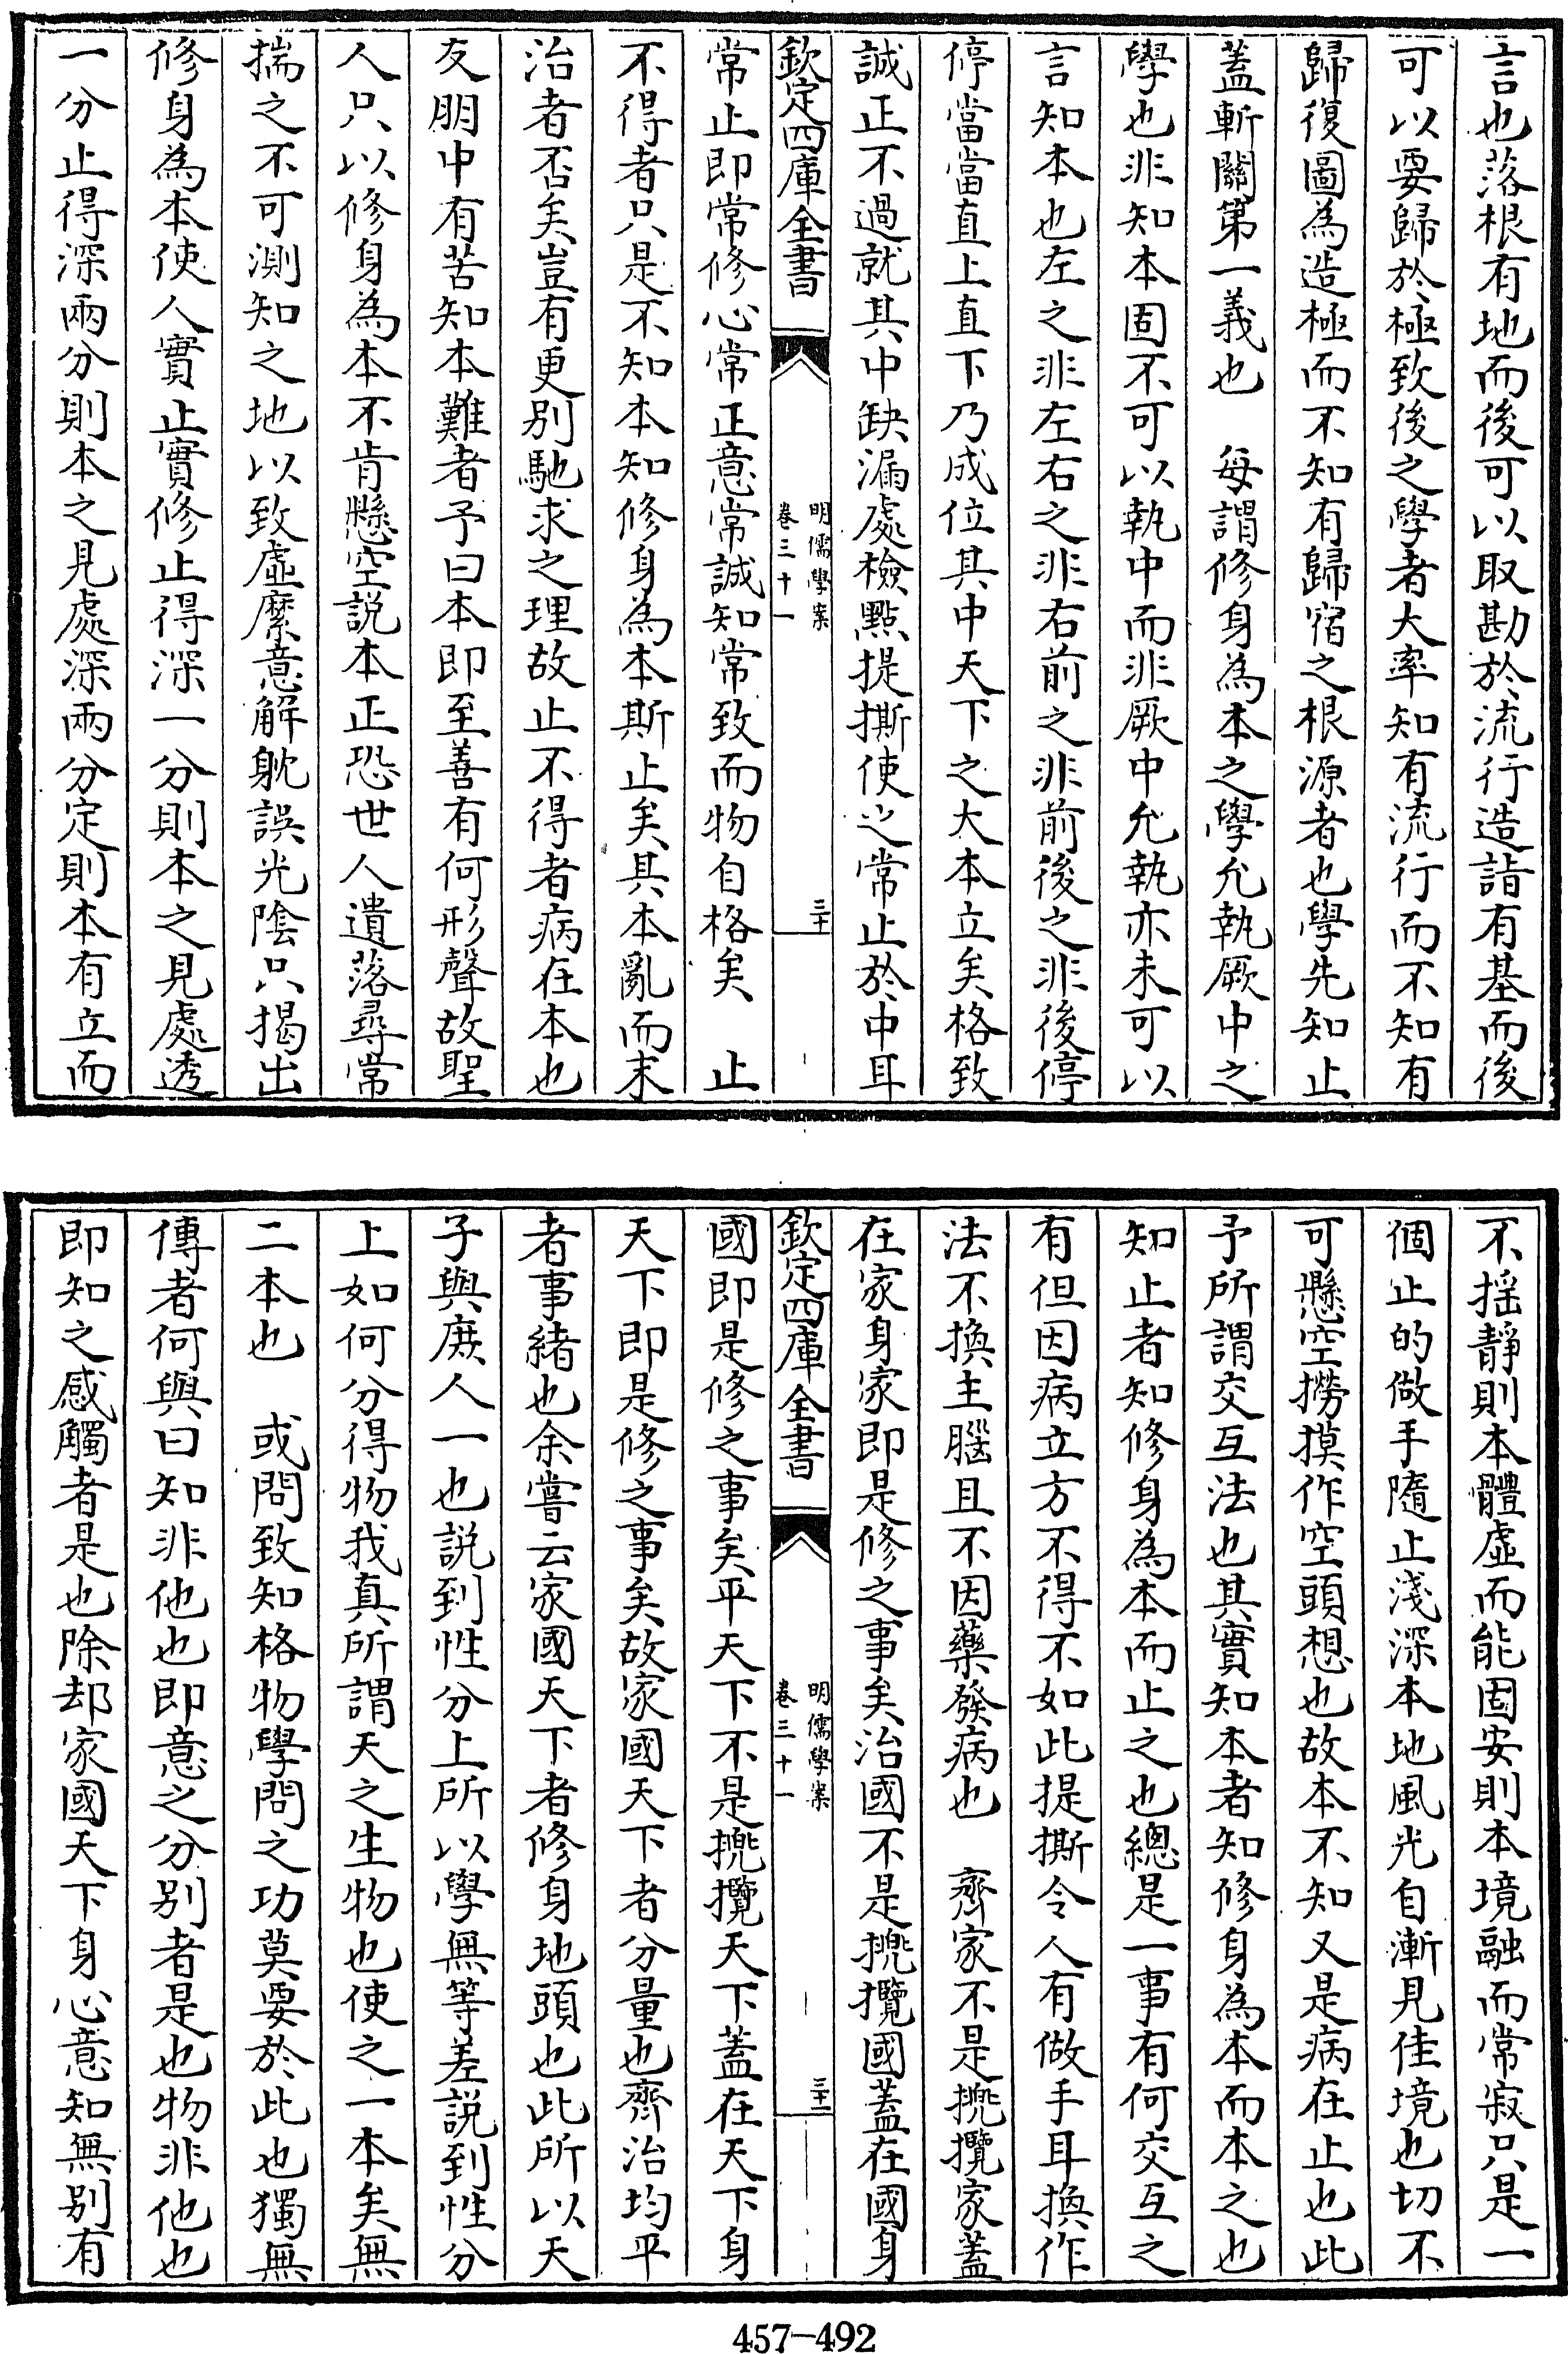 言也落根有地而後可以取勘於流行造詣有基而後
可以要歸於極致後之學者大率知有流行而不知有
歸復圖為造極而不知有歸宿之根源者也學先知止
蓋斬關第一義也　每謂修身為本之學允執厥中之
學也非知本固不可以執中而非厥中允執亦未可以
言知本也左之非左右之非右前之非前後之非後停
停當當直上直下乃成位其中天下之大本立矣格致
誠正不過就其中缺漏處檢點提撕使之常止於中耳
欽定四庫全書
明儒學案
卷三十一
三十
常止即常修心常正意常誠知常致而物自格矣　止
不得者只是不知本知修身為本斯止矣其本亂而末
治者否矣豈有更別馳求之理故止不得者病在本也
友朋中有苦知本難者予曰本即至善有何形聲故聖
人只以修身為本不肯懸空說本正恐世人遺落尋常
揣之不可測知之地以致虛縻意解躭誤光陰只揭出
修身為本使人實止實修止得深一分則本之見處透
一分止得深兩分則本之見處深兩分定則本有立而
不揺靜則本體虛而能固安則本境融而常寂只是一
個止的做手隨止淺深本地風光自漸見佳境也切不
可懸空撈摸作空頭想也故本不知又是病在止也此
予所謂交互法也其實知本者知修身為本而本之也
知止者知修身為本而止之也總是一事有何交互之
有但因病立方不得不如此提撕令人有做手耳換作
法不換主腦且不因藥發病也　齊家不是攙攬家蓋
在家身家即是修之事矣治國不是攙攬國蓋在國身
欽定四庫全書
明儒學案
卷三十一
三十一
國即是修之事矣平天下不是攙攬天下蓋在天下身
天下即是修之事矣故家國天下者分量也齊治均平
者事緒也余嘗云家國天下者修身地頭也此所以天
子與庶人一也說到性分上所以學無等差說到性分
上如何分得物我真所謂天之生物也使之一本矣無
二本也　或問致知格物學問之功莫要於此也獨無
傳者何與曰知非他也即意之分別者是也物非他也
即知之感觸者是也除却家國天下身心意知無別有
457-492